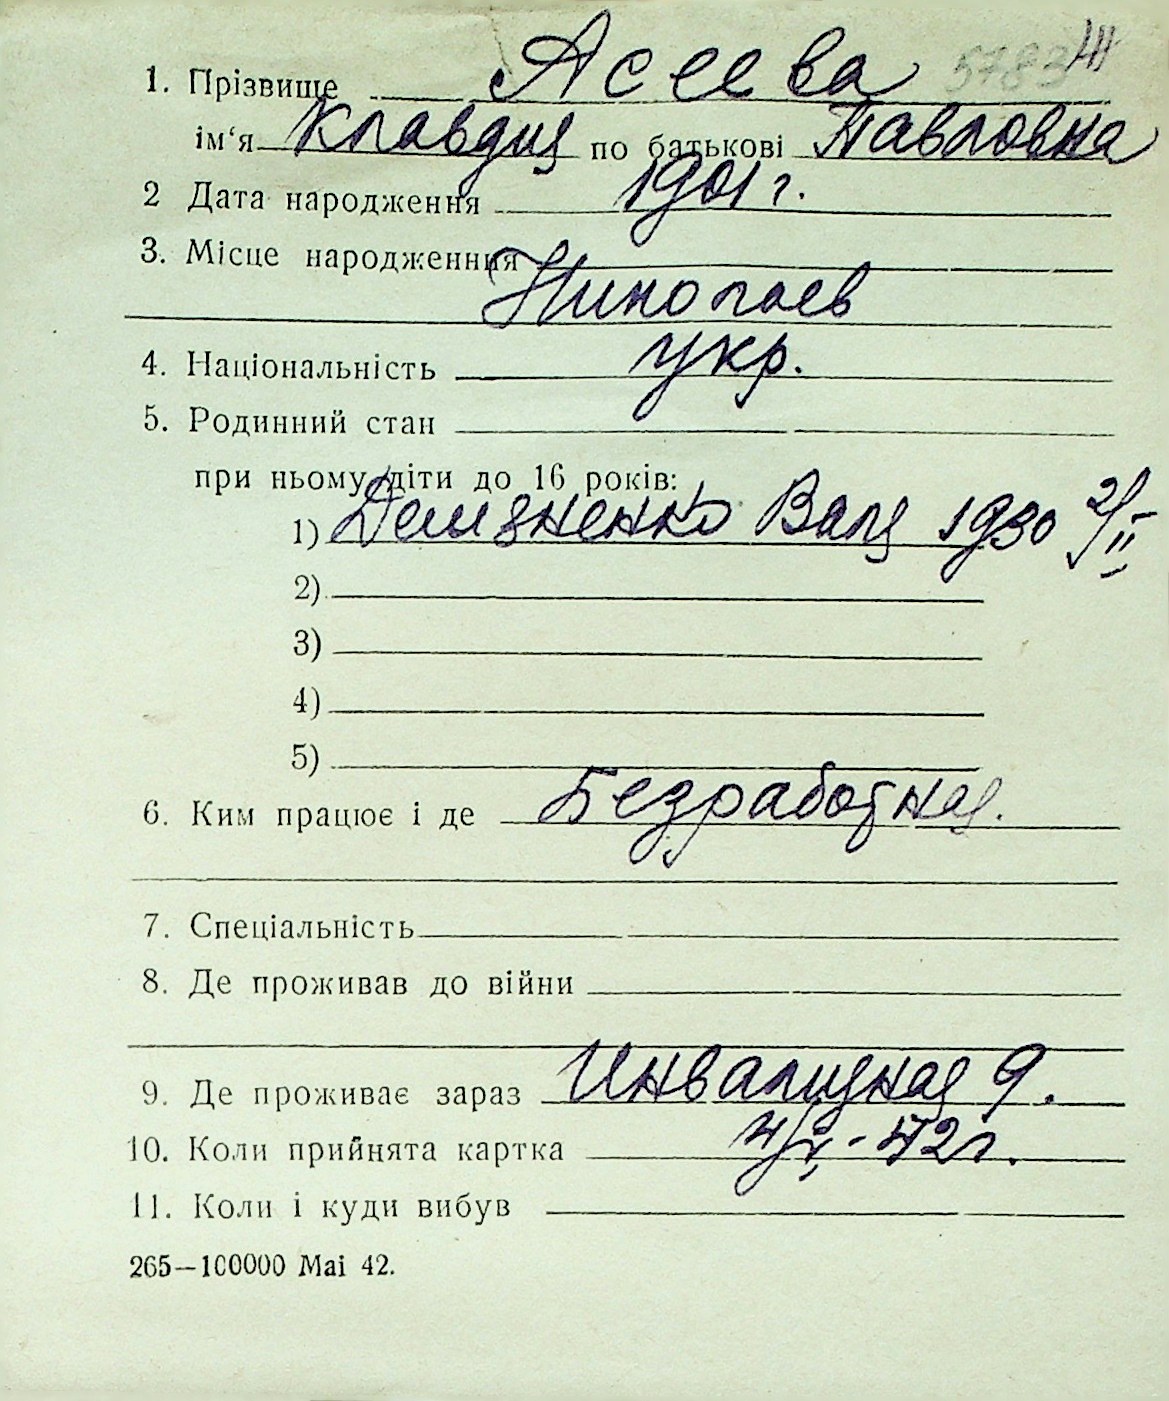 5783 III
1. Прізвище Асеева
ім‘я Клавдия по батькові Павловна
2 Дата народження 1901 г.
3. Місце народженння
Николаев
4. Національність укр.
5. Родинний стан
при ньому діти до 16 років:
1) Валя 1930 2/II
2)
3)
4)
5)
6. Ким працює і де Безработная.
7. Спеціальність
8. Де проживав до війни
9. Де проживає зараз 9.
10. Коли прийнята картка 42 г.
11. Коли і куди вибув
265—100000 Mai 42.